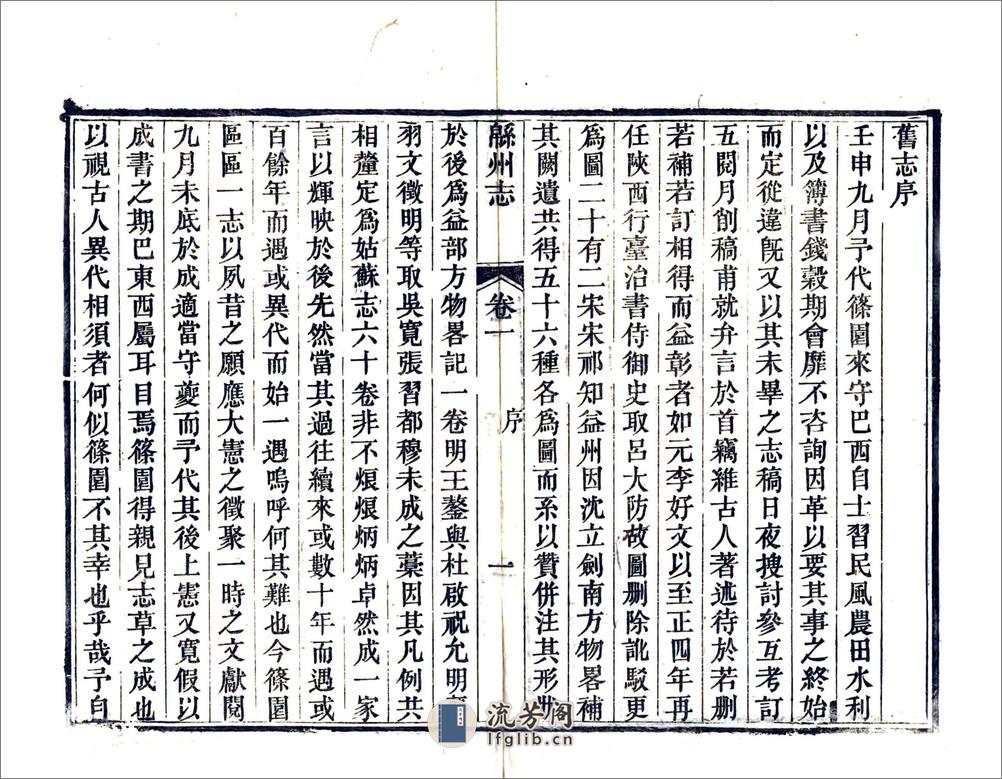 舊志序
壬申九月予代篠園來守巴西自士習民風農田水利
以及簿書錢穀期會靡不咨詢因革以要其事之終始
而定從違旣又以其未畢之志稿日夜搜討參互考訂
五閱月創稿甫就弁言於首竊維古人著述待於若刪
若補若訂相得而益彰者如元李好文以至正四年再
任陝西行臺治書侍御史取呂大防故圖刪除訛駁更
為圖二十有二宋宋祁知益州因沈立劍南方物畧補
其闕遺共得五十六種各為圖而系以贊併注其形狀
緜州志 卷一 序 一
於後為益部方物畧記一卷明王鏊與杜啟祝允明
羽文徵明等取吳寬張習都穆未成之藁因其凡例共
相釐定為姑蘇志六十卷非不煨煨炳炳卓然成一家
言以輝映於後先然當其過往續來或數十年而遇或
百餘年而遇或異代而始一遇嗚呼何其難也今篠園
區區一志以夙昔之願應大憲之徵聚一時之文獻閱
九月未底於成適當守夔而予代其後上憲又寬假以
成書之期巴東西屬耳目焉篠園得親見志草之成也
以視古人異代相須者何似篠園不其幸也乎哉予自
流芳閣
lfglib.cn